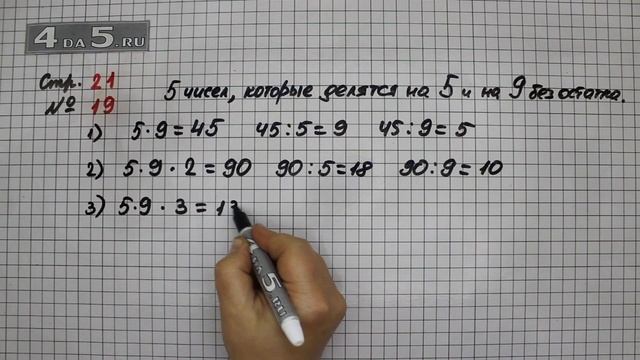 4 DA 5.RU
Стр. 21
№ 19
5 чисел, которые делятся на 5 и на 9 без остатка.
1) 5·9=45 45:5=9 45:9=5
2) 5·9·2=90 90:5=18 90:9=10
3) 5·9·3=13
DA 5.RU